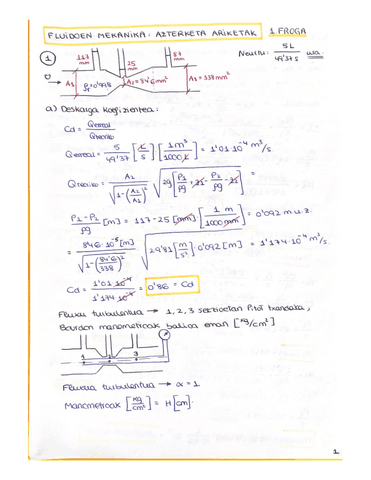 FLUIDOEN MEKANIKA: AZTERKETA ARIKETAK 1. FROGA
1 117 mm 25 mm 87 mm Neurtu: 5L / 49'37 s ura
A1 A2 = 84'6 mm² A3 = 338 mm²
a) Deskarga koefizientea:
Cd = Qerreal / Qteoriko
Qerreal = 5 / 49'37 [L/s] [1 m³ / 1000 L] = 1'01·10⁻⁴ m³/s
Qteoriko = A2 / √(1-(A2/A1)²) √(2g [P1/ρg + z1 - P2/ρg - z2]) =
P1-P2 / ρg [m] = 117-25 [mm] · [1 m / 1000 mm] = 0'092 m u.z.
= 84'6·10⁻⁶ [m] / √(1-(84'6/338)²) √(2·9'81 [m/s²] · 0'092 [m]) = 1'174·10⁻⁴ m³/s.
Cd = 1'01·10⁻⁴ / 1'174·10⁻⁴ = 0'86 = Cd
Fluxu turbulentua → 1, 2, 3 sekzioetan Pitot txandaka,
Bourdon manometroak balioa eman [kg/cm²]
1 2 3
Fluxua turbulentua → α = 1
Manometroak [kg/cm²] = H [cm].
1